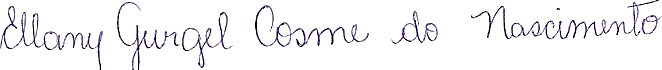 Ellany Gurgel Cosme do Nascimento